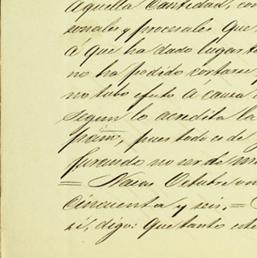 aquella cantidad, con
sonales y procesales que
á que ha dado lugar
no ha podido cortarse
no tubo efecto á causa
segun lo acredita la
pues todo es de
jurando no ser de
= Nacas Octubre on
cincuenta y seis. =
zi, digo: Que tanto este